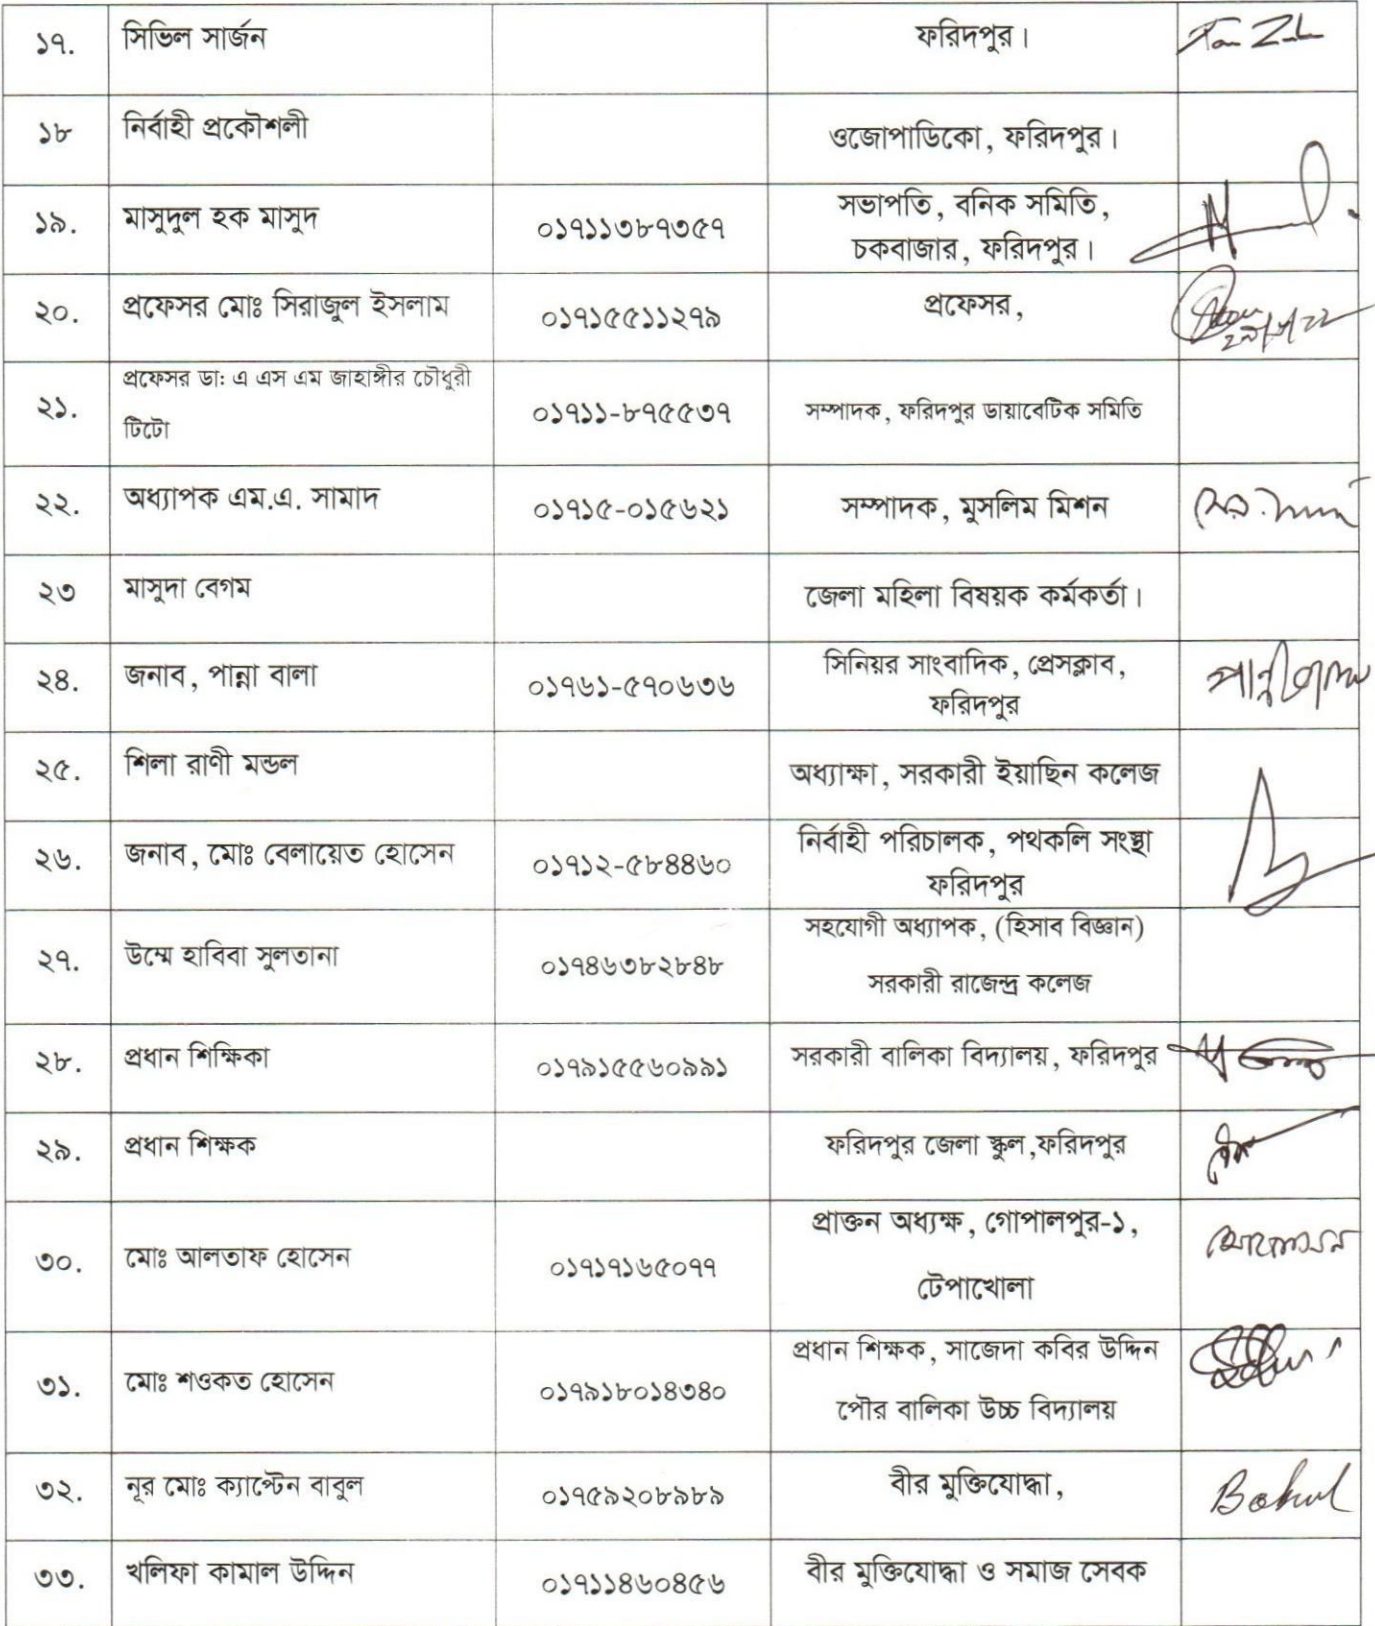 ১৭. সিভিল সার্জন ফরিদপুর।
১৮ নির্বাহী প্রকৌশলী ওজোপাডিকো, ফরিদপুর।
১৯. মাসুদুল হক মাসুদ ০১৭১১৩৮৭৩৫৭ সভাপতি, বনিক সমিতি,
চকবাজার, ফরিদপুর।
২০. প্রফেসর মোঃ সিরাজুল ইসলাম ০১৭১৫৫১১২৭৯ প্রফেসর,
২১. প্রফেসর ডা: এ এস এম জাহাঙ্গীর চৌধুরী
টিটো ০১৭১১-৮৭৫৫৩৭ সম্পাদক, ফরিদপুর ডায়াবেটিক সমিতি
২২. অধ্যাপক এম.এ. সামাদ ০১৭১৫-০১৫৬২১ সম্পাদক, মুসলিম মিশন
২৩ মাসুদা বেগম জেলা মহিলা বিষয়ক কর্মকর্তা।
২৪. জনাব, পান্না বালা ০১৭৬১-৫৭০৬৩৬ সিনিয়র সাংবাদিক, প্রেসক্লাব,
ফরিদপুর পান্না বালা
২৫. শিলা রাণী মন্ডল অধ্যাক্ষা, সরকারী ইয়াছিন কলেজ
২৬. জনাব, মোঃ বেলায়েত হোসেন ০১৭১২-৫৮৪৪৬০ নির্বাহী পরিচালক, পথকলি সংস্থা
ফরিদপুর
২৭. উম্মে হাবিবা সুলতানা ০১৭৪৬৩৮২৮৪৮ সহযোগী অধ্যাপক, (হিসাব বিজ্ঞান)
সরকারী রাজেন্দ্র কলেজ
২৮. প্রধান শিক্ষিকা ০১৭৯১৫৫৬০৯৯১ সরকারী বালিকা বিদ্যালয়, ফরিদপুর
২৯. প্রধান শিক্ষক ফরিদপুর জেলা স্কুল,ফরিদপুর
৩০. মোঃ আলতাফ হোসেন ০১৭১৭১৬৫০৭৭ প্রাক্তন অধ্যক্ষ, গোপালপুর-১,
টেপাখোলা
৩১. মোঃ শওকত হোসেন ০১৭৯১৮০১৪৩৪০ প্রধান শিক্ষক, সাজেদা কবির উদ্দিন
পৌর বালিকা উচ্চ বিদ্যালয়
৩২. নূর মোঃ ক্যাপ্টেন বাবুল ০১৭৫৯২০৮৯৮৯ বীর মুক্তিযোদ্ধা,
৩৩. খলিফা কামাল উদ্দিন ০১৭১১৪৬০৪৫৬ বীর মুক্তিযোদ্ধা ও সমাজ সেবক